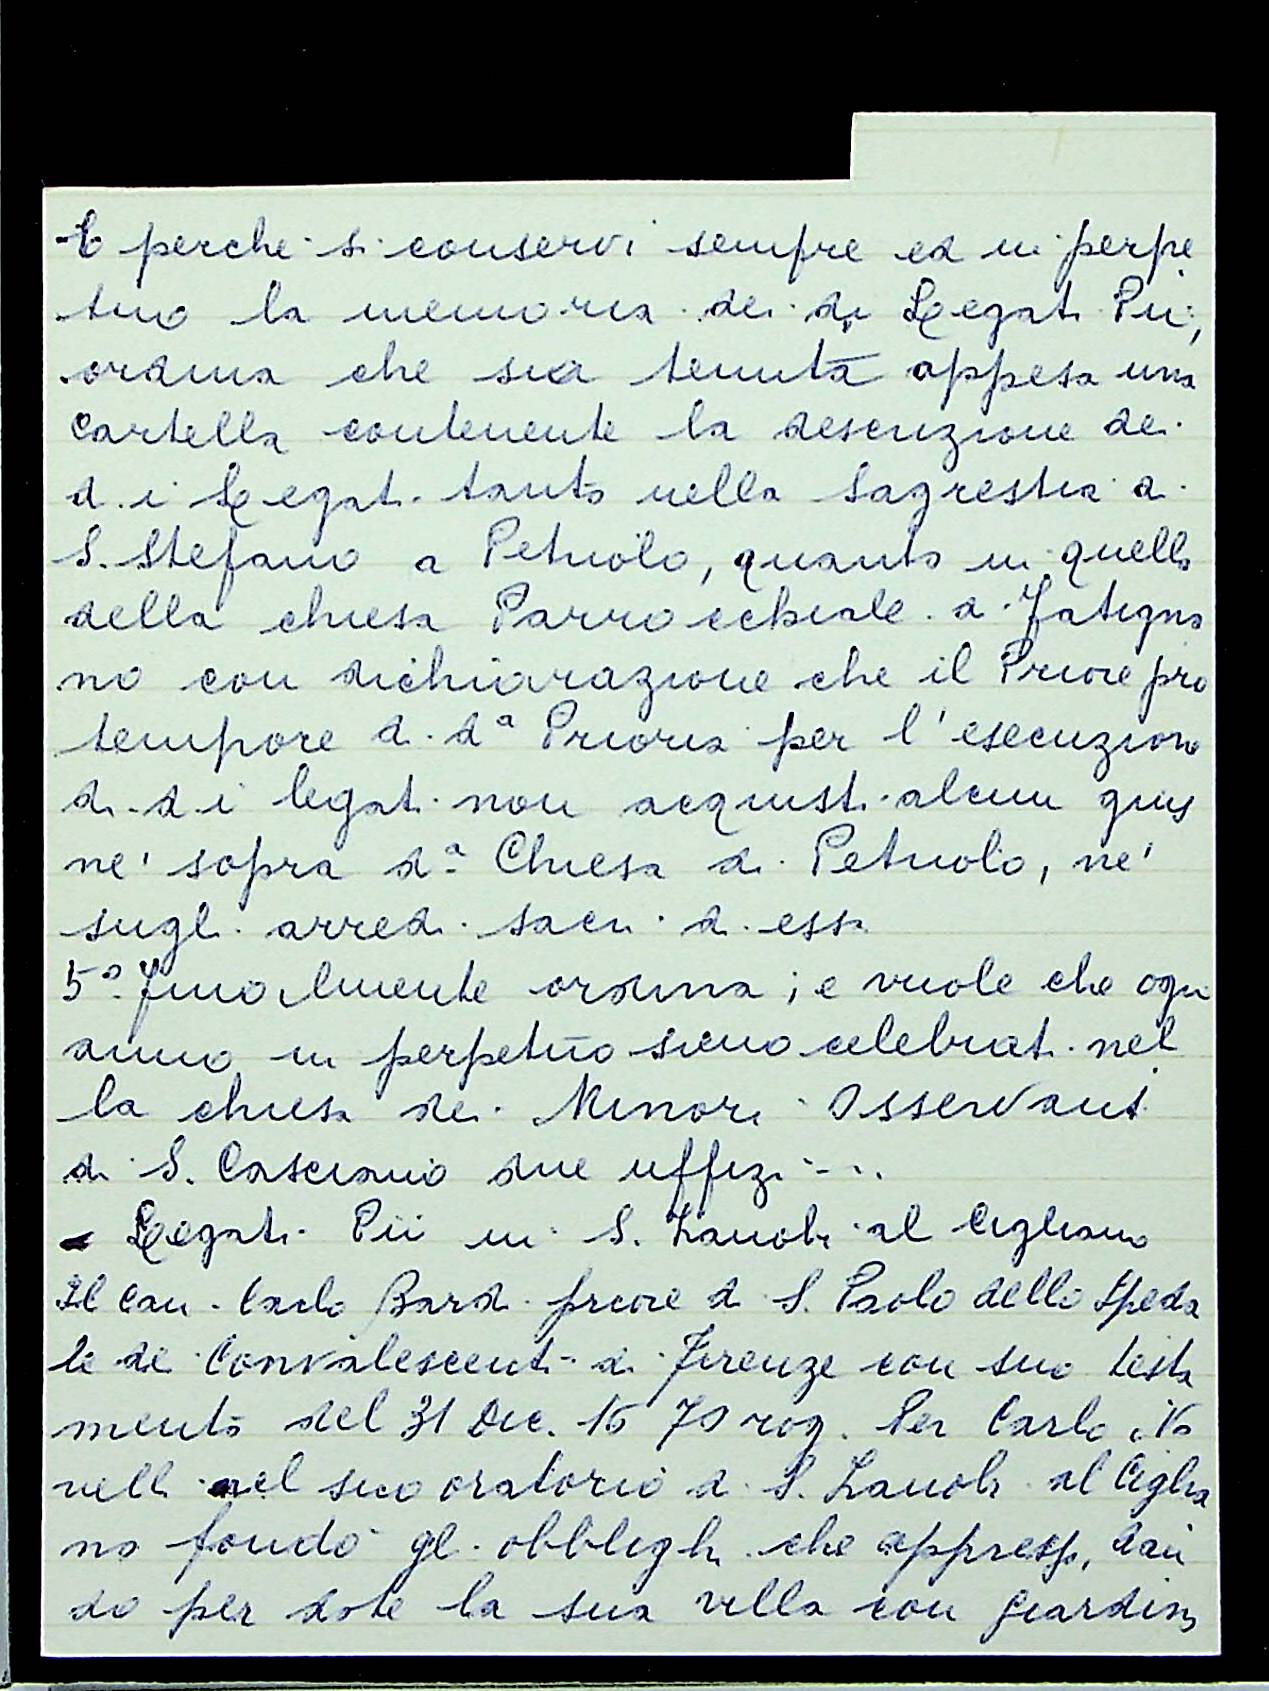 E perche si conservi sempre ed in perpe
tuo la memoria dei di Legati Pii,
ordina che sia tenuta appesa una
cartella contenente la descrizione dei
d.i Legati tanto nella Sagrestia di
S. Stefano a Petriolo, quanto in quella
della chiesa Parrocchiale di Fatigna
no con dichiarazione che il Priore pro
tempore di dª Prioria per l'esecuzione
di d.i legati non acquisti alcun gius
ne' sopra dª Chiesa di Petriolo, ne'
sugli arredi sacri di essa
5º Finalmente ordina; e vuole che ogni
anno in perpetuo sieno celebrati nel
la chiesa dei Minori Osservanti
di S. Casciano due uffizi - - .
- Legati Pii in S. Zanobi al Cigliano
Il Can. Carlo Bardi priore di S. Paolo dello Speda
le dei Convalescenti di Firenze con suo testa
mento del 31 Dic. 1670 rog. Per Carlo No
velli nel suo oratorio di S. Zanobi al Ciglia
no fondò gli obblighi che appresso, dan
do per dote la sua villa con giardino